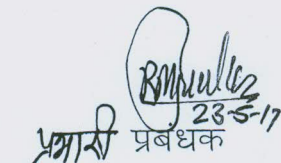 23-5-17
प्रभारी प्रबंधक